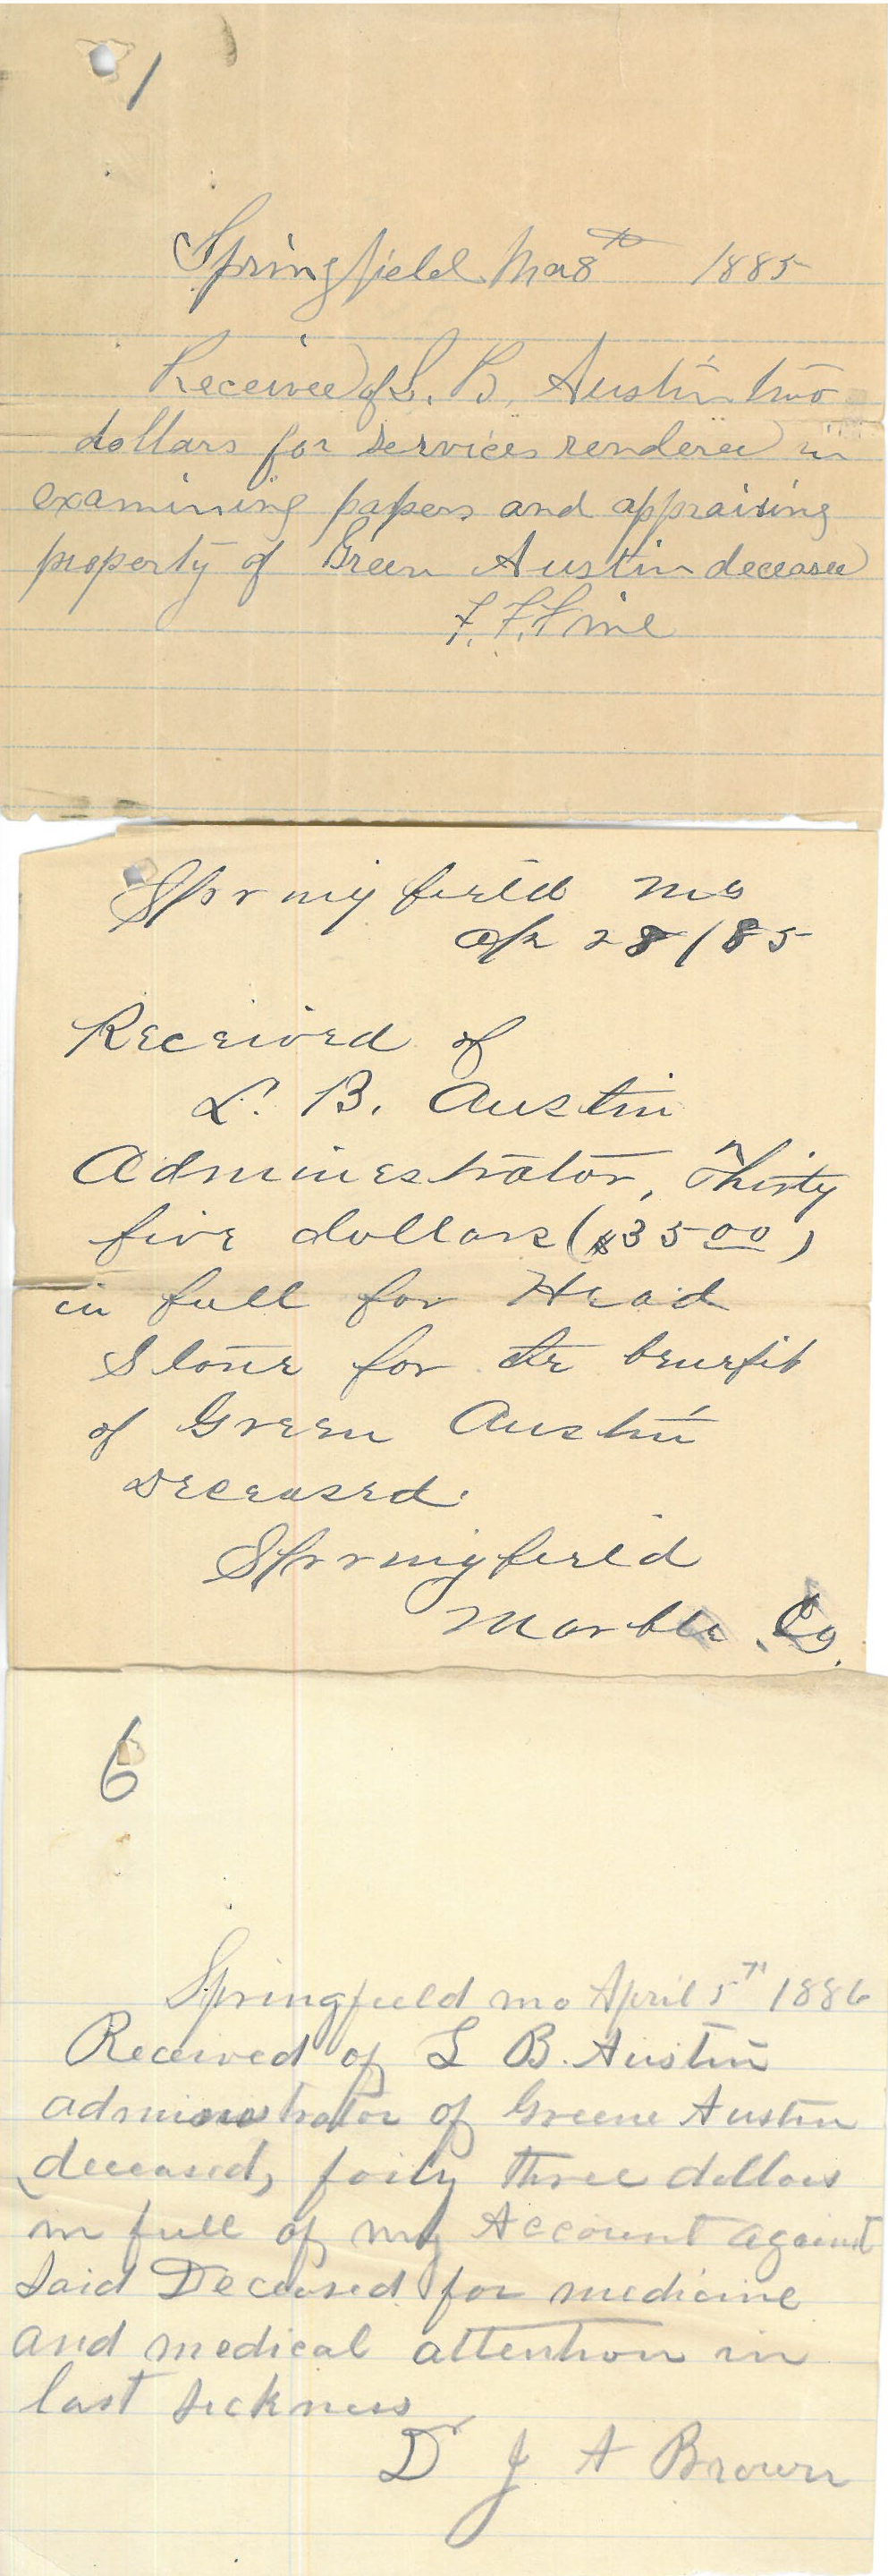 1
Springfield Mar 8th 1885
Received of L. B. Austin two
dollars for services rendered in
examining papers and appraising
property of Green Austin deceased
F. F. Fine
Springfield Mo
Apr 28/85
Received of
L. B. Austin
Administrator, Thirty
five dollars ($35 00)
in full for Head
Stone for the benefit
of Green Austin
Deceased.
Springfield
Marble Co.
6
Springfield Mo April 5th 1886
Received of L B. Austin
administrator of Greene Austin
deceased, forty three dollars
in full of my Account against
Said Deceased for medicine
and medical attention in
last sickness
Dr J A Brown